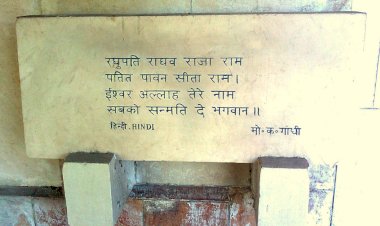 रघुपति राघव राजा राम
पतित पावन सीता राम।
ईश्वर अल्लाह तेरे नाम
सबको सन्मति दे भगवान॥
हिन्दी. HINDI मो॰क॰गांधी